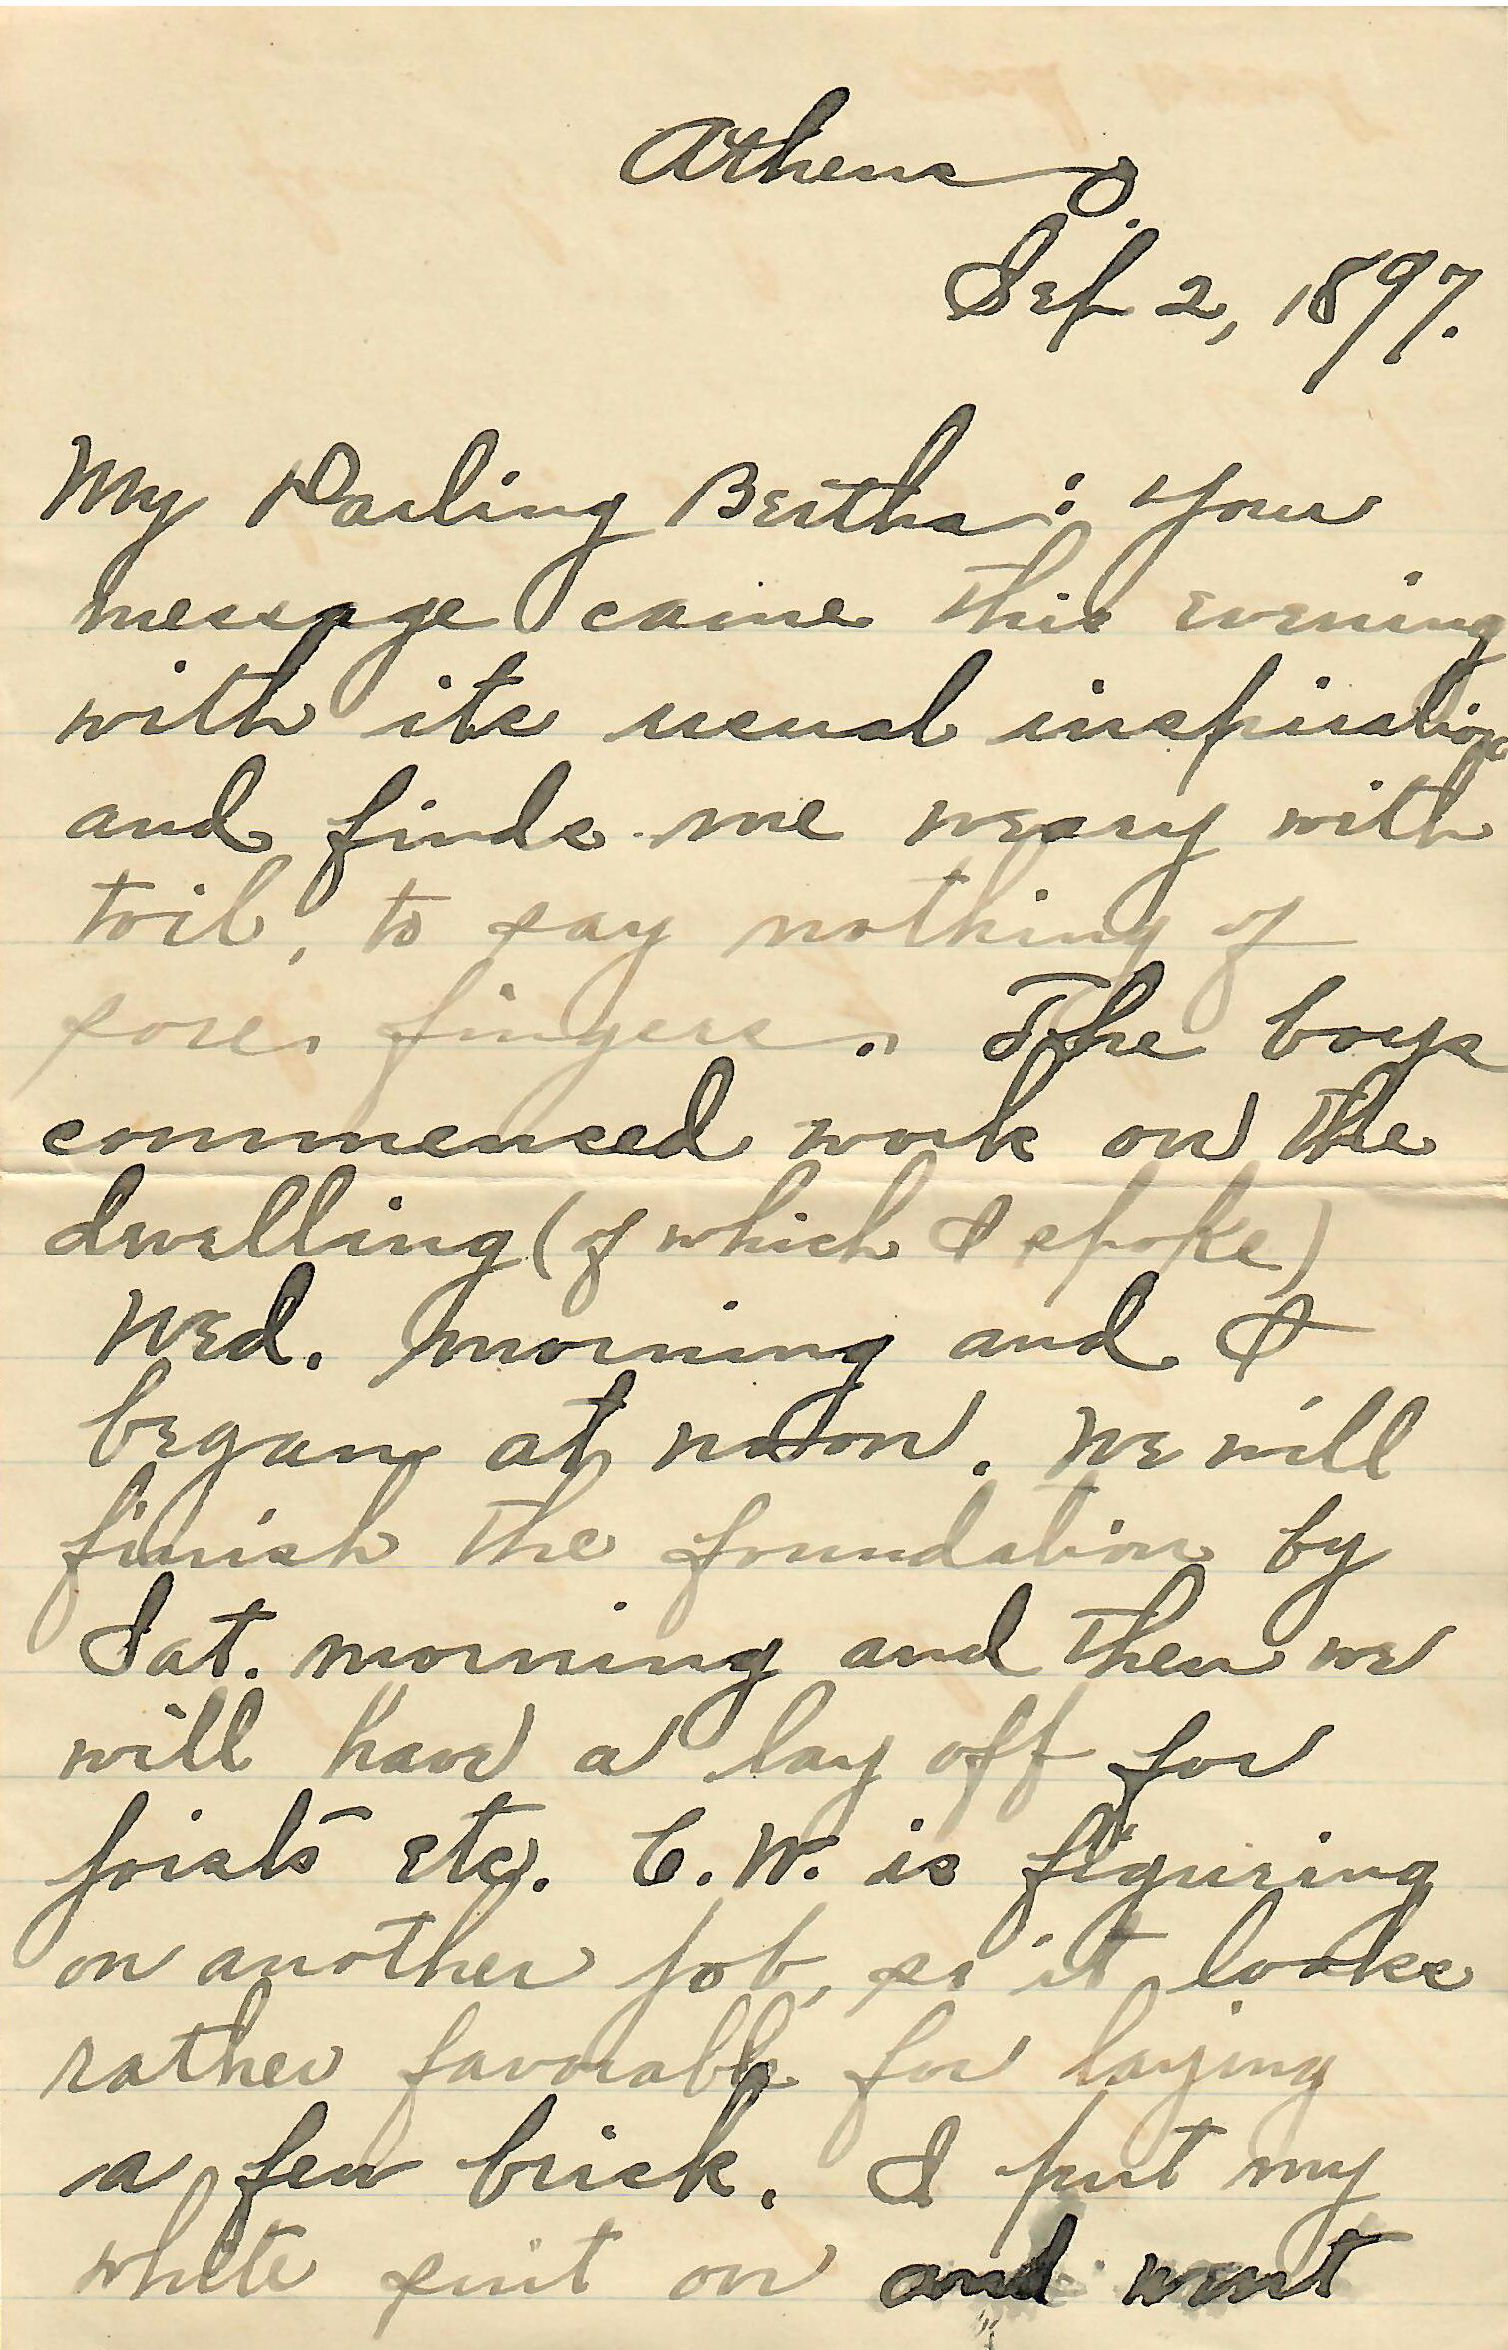 Athens O.
Sep 2, 1897.
My Darling Bertha: Your
message came this evening
with its usual inspiration
and finds me weary with
toil, to say nothing of
sore fingers. The boys
commenced work on the
dwelling (of which I spoke)
Wed. morning and I
began at noon. We will
finish the foundation by
Sat. morning and then we
will have a lay off for
joists etc. C.W. is figuring
on another job, so it looks
rather favorable for laying
a few brick. I put my
white suit on and went